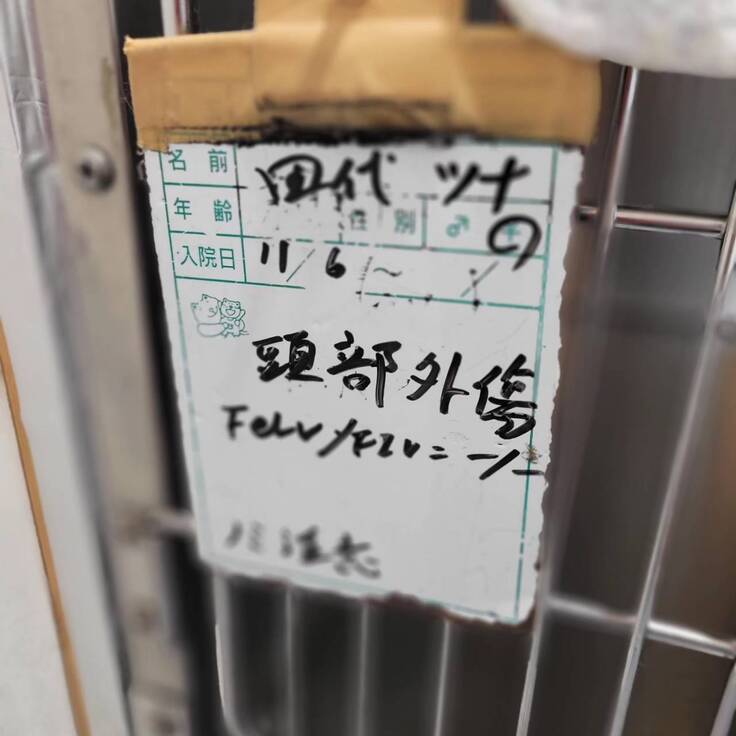 名前 田代 ツナ
年齢 性別 ♂ ♀
入院日 11/6 ～ /
頭部外傷
FeLV/FIV=-/-
注意